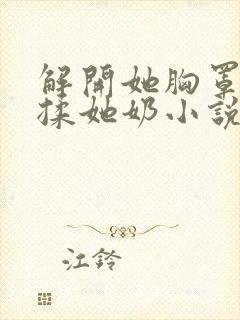 解開她胸罩
揉她奶小說
江鈴